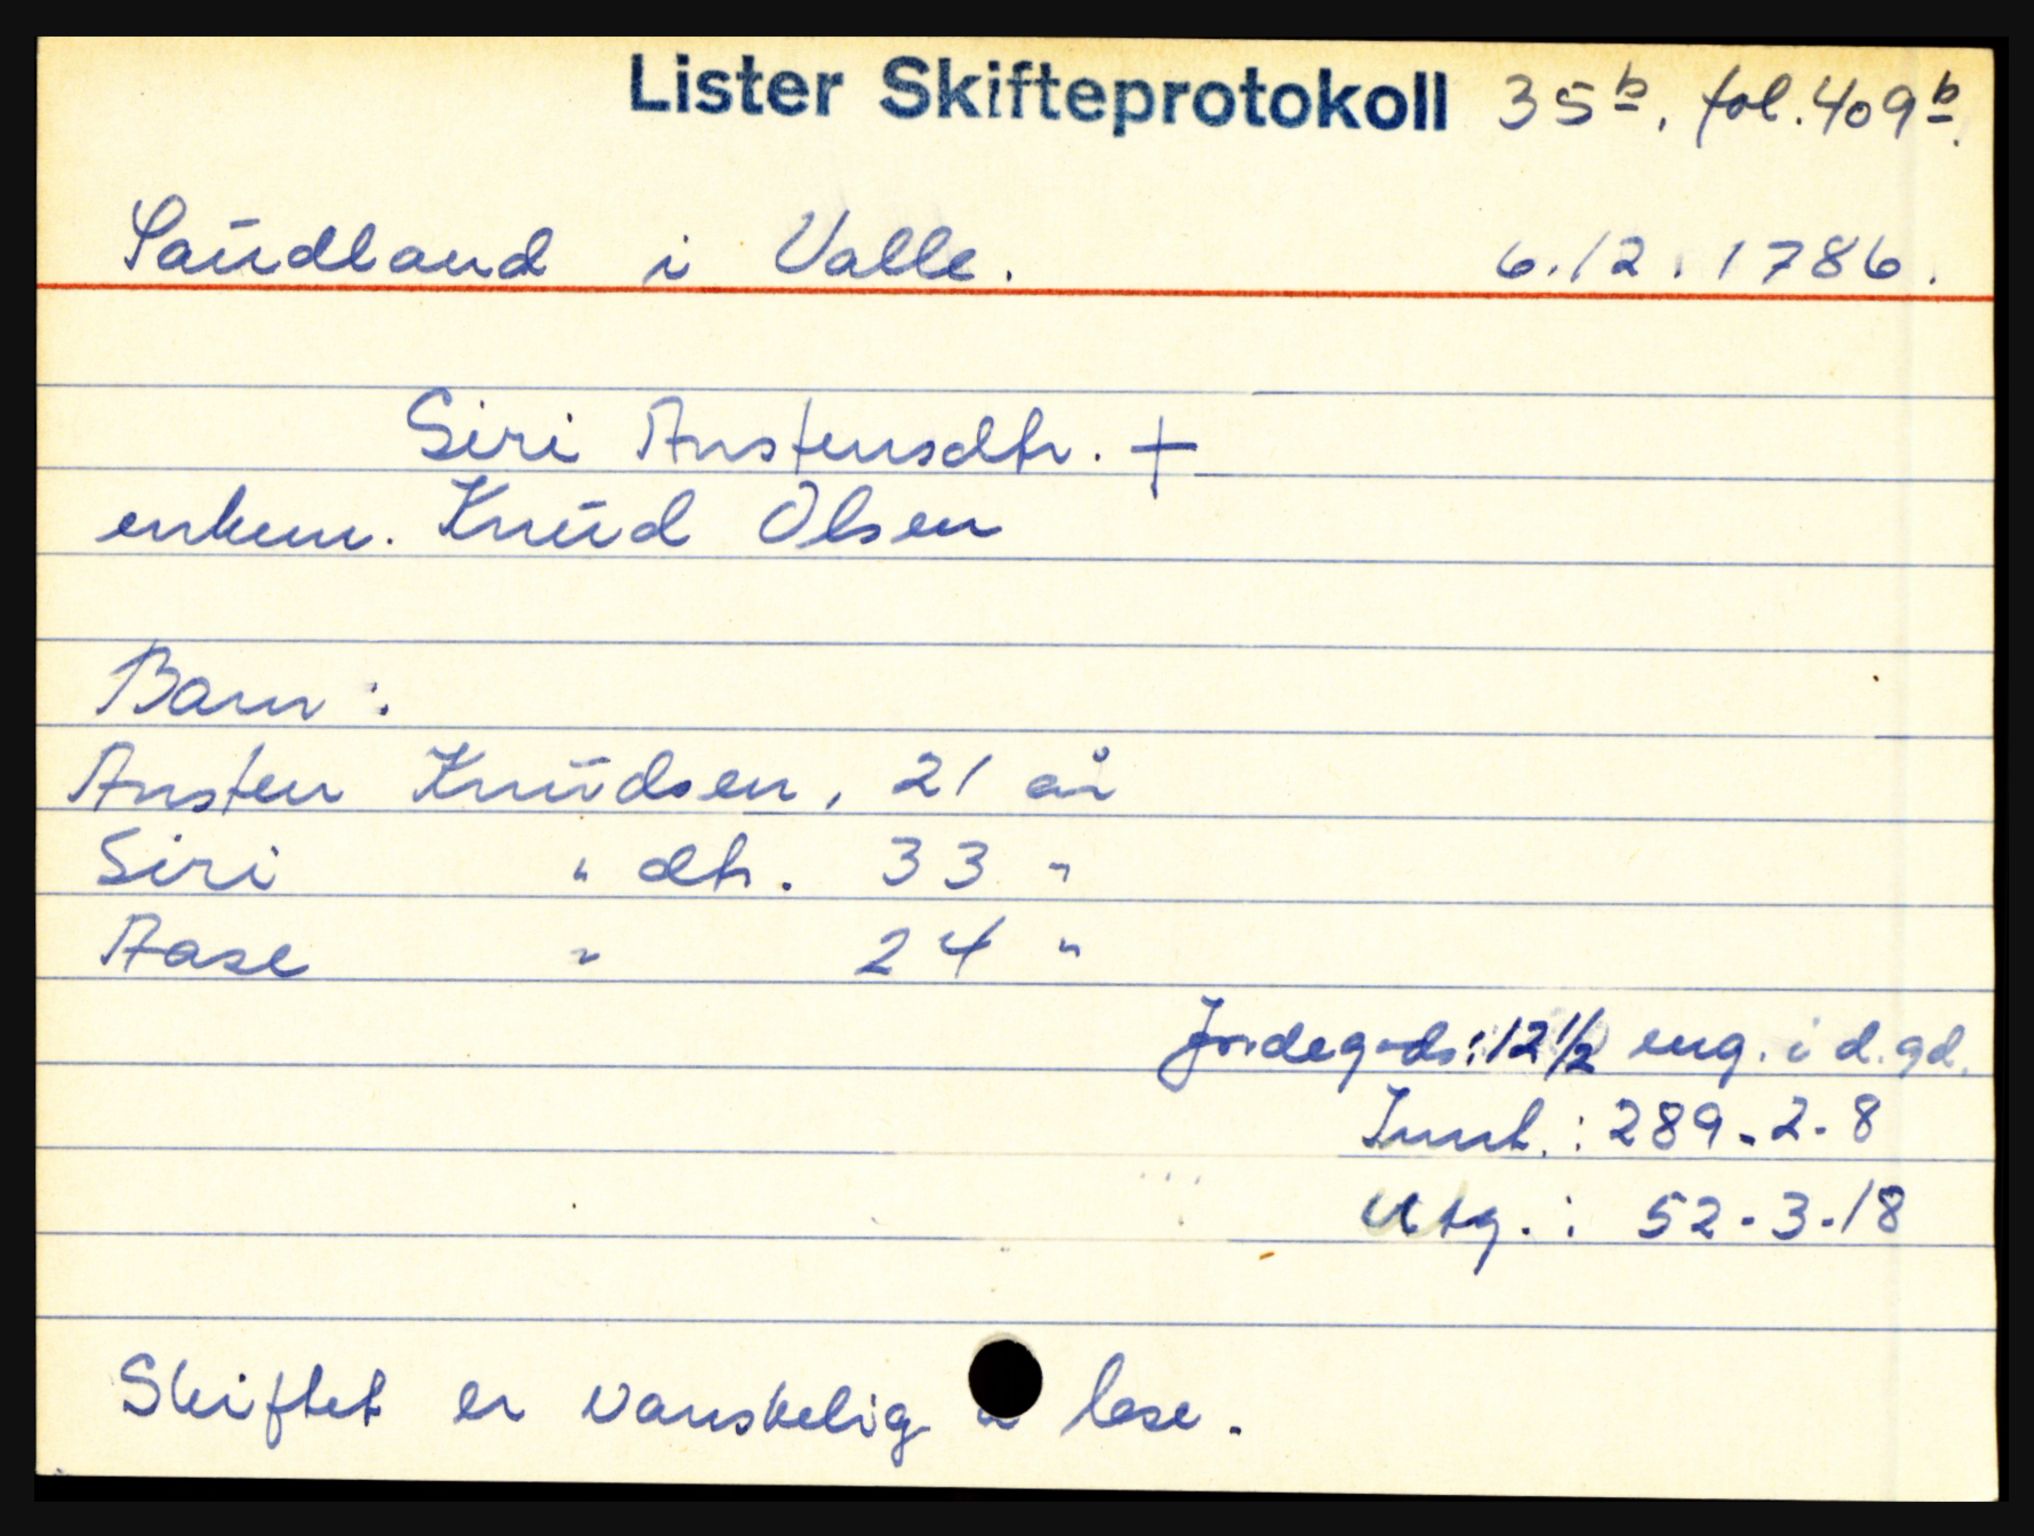 Lister Skifteprotokoll 35b. fol. 409b.
Saudland i Valle. 6.12.1786.
Siri Austensdtr. +
enkem. Knud Olsen
Barn:
Austen Knudsen, 21 år
Siri " dtr. 33 "
Aase " 24 "
Jordegods: 12 1/2 eng. i d. gd.
Innt.: 289-2-8
Utg.: 52-3-18
Skiftet er vanskelig å lese.